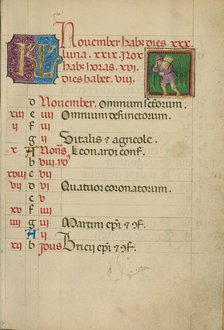 KL November habꝫ dies xxx.
luna. xxix. Nox
habꝫ horas. xvi.
dies habet. viii.
d November. Omnium sctorum.
xiii e iiii Omnium defunctorum.
ii f iii
g ii Vitalis & agricole.
x A Nonis Leonardi conf.
b viii
xviii c vii
vii d vi Quatuor coronatorum.
e v
xv f iiii
iiii g iii Martini epi & cf.
A ii
xii b Idus Bricii epi & cf.